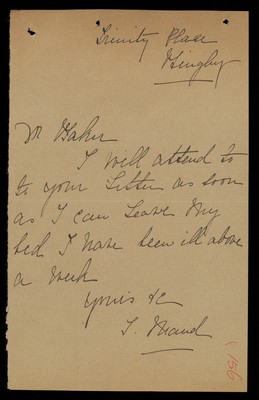 Trinity Place
Hingley
Mr Baker
I will attend to
to your Letter as soon
as I can Leave My
bed I have been ill above
a week
yours &c
T. Maund
156